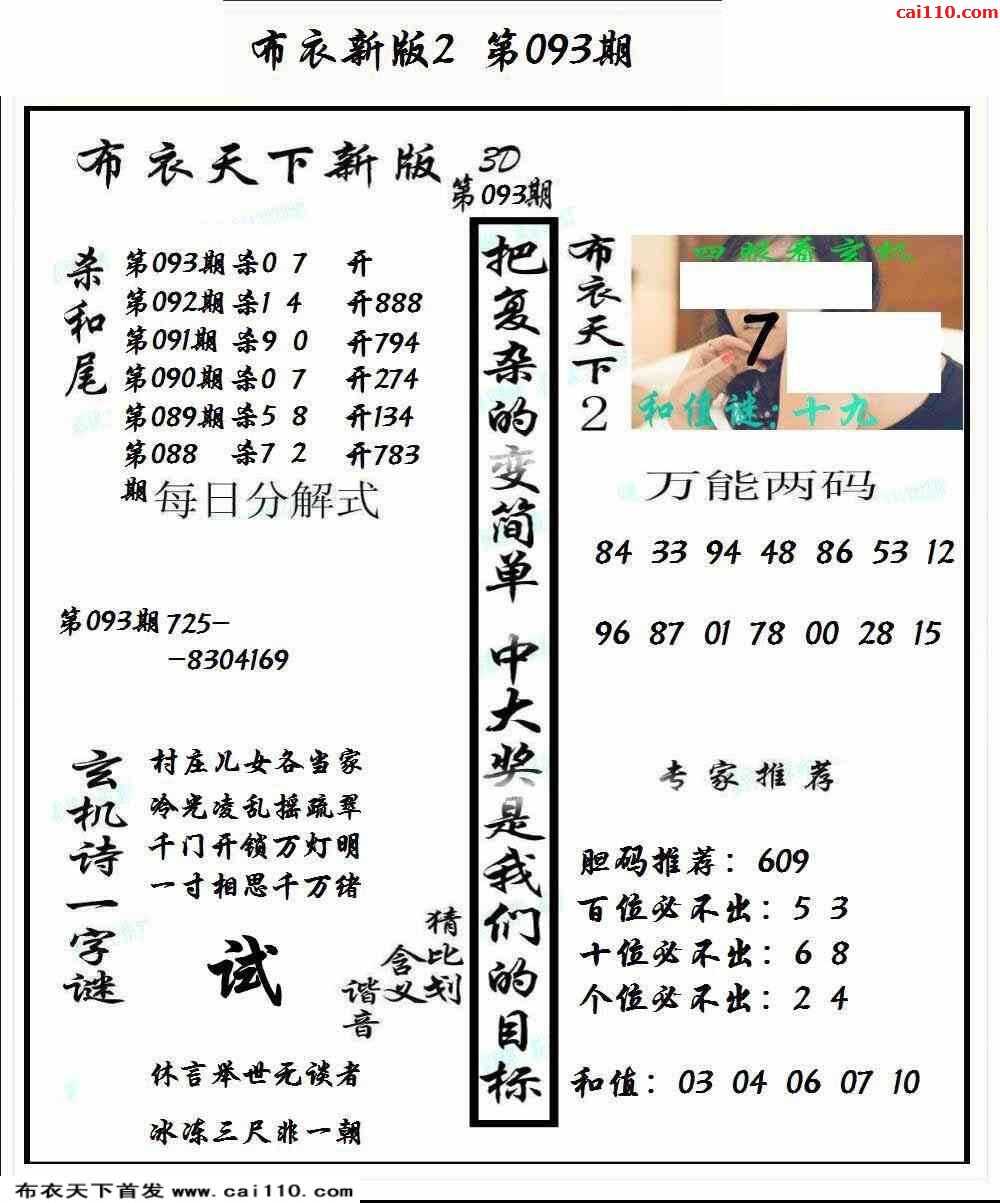 cai110.com
布衣新版2 第093期
布衣天下新版
3D
第093期
杀和尾
第093期 杀0 7 开
第092期 杀1 4 开888
第091期 杀9 0 开794
第090期 杀0 7 开274
第089期 杀5 8 开134
第088期 杀7 2 开783
每日分解式
第093期 725-
-8304169
玄机诗一字谜
村庄儿女各当家
冷光凌乱摇疏翠
千门开锁万灯明
一寸相思千万绪
试
猜比划
含义
谐音
休言举世无谈者
冰冻三尺非一朝
把复杂的变简单 中大奖是我们的目标
布衣天下2
四眼看玄机
7
和值谜:十九
万能两码
84 33 94 48 86 53 12
96 87 01 78 00 28 15
专家推荐
胆码推荐：609
百位必不出：5 3
十位必不出：6 8
个位必不出：2 4
和值：03 04 06 07 10
布衣天下首发 www.cai110.com